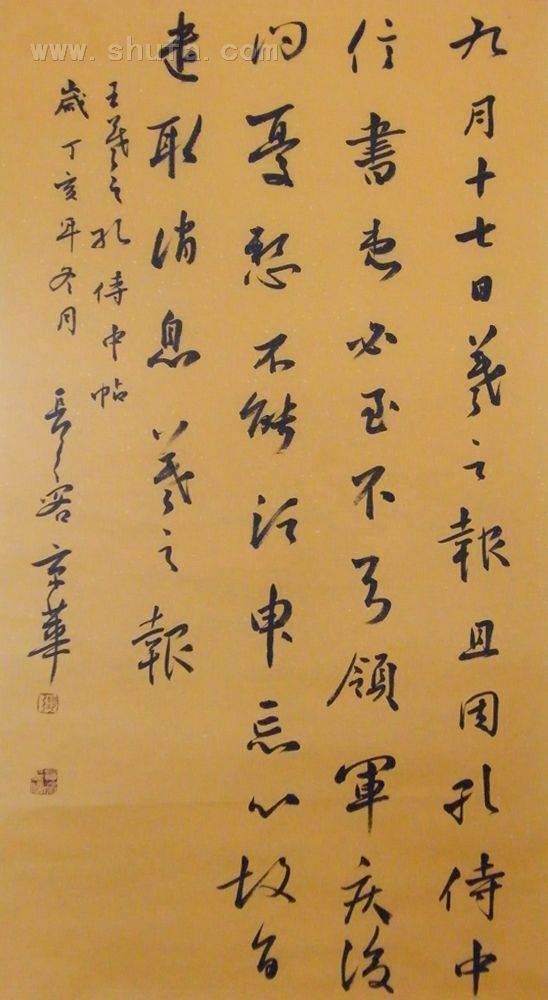 九月十七日羲之報且因孔侍中
信書想必至不知領軍疾後
問憂懸不能須臾忘心故旨
遣取消息羲之報
王羲之孔侍中帖
歲丁亥年冬月 京華
www.shufa.com